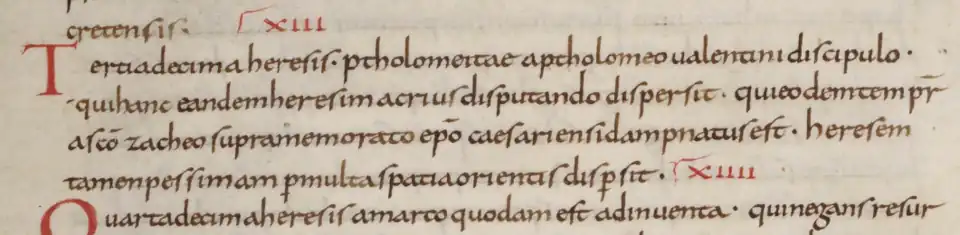 cretensis · XIII
Tertia decima heresis · ptholomeitae a ptholomeo ualentini discipulo ·
· qui hanc eandem heresim acrius disputando dispersit · qui eodem tempr̄
a sc̄o zacheo supra memorato ep̄o caesariensi dampnatus est · heresem
tamen pessimam ꝑ multa spatia orientis disꝑsit · XIIII
Quarta decima heresis a marco quodam est adinuenta · qui negans resur